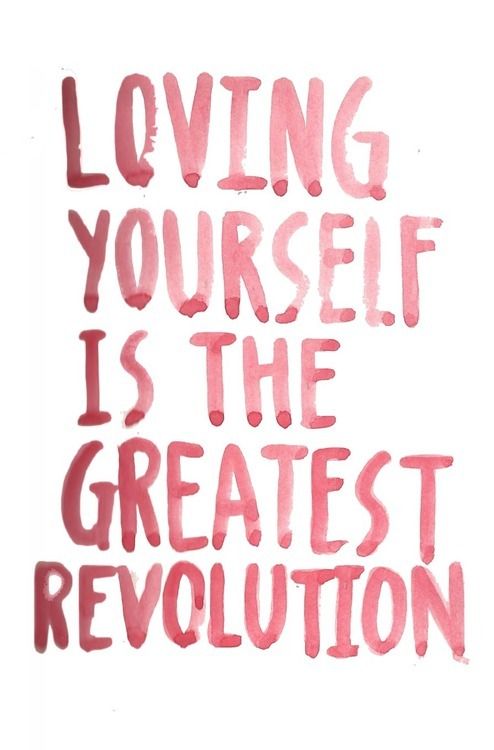 LOVING
YOURSELF
IS THE
GREATEST
REVOLUTION